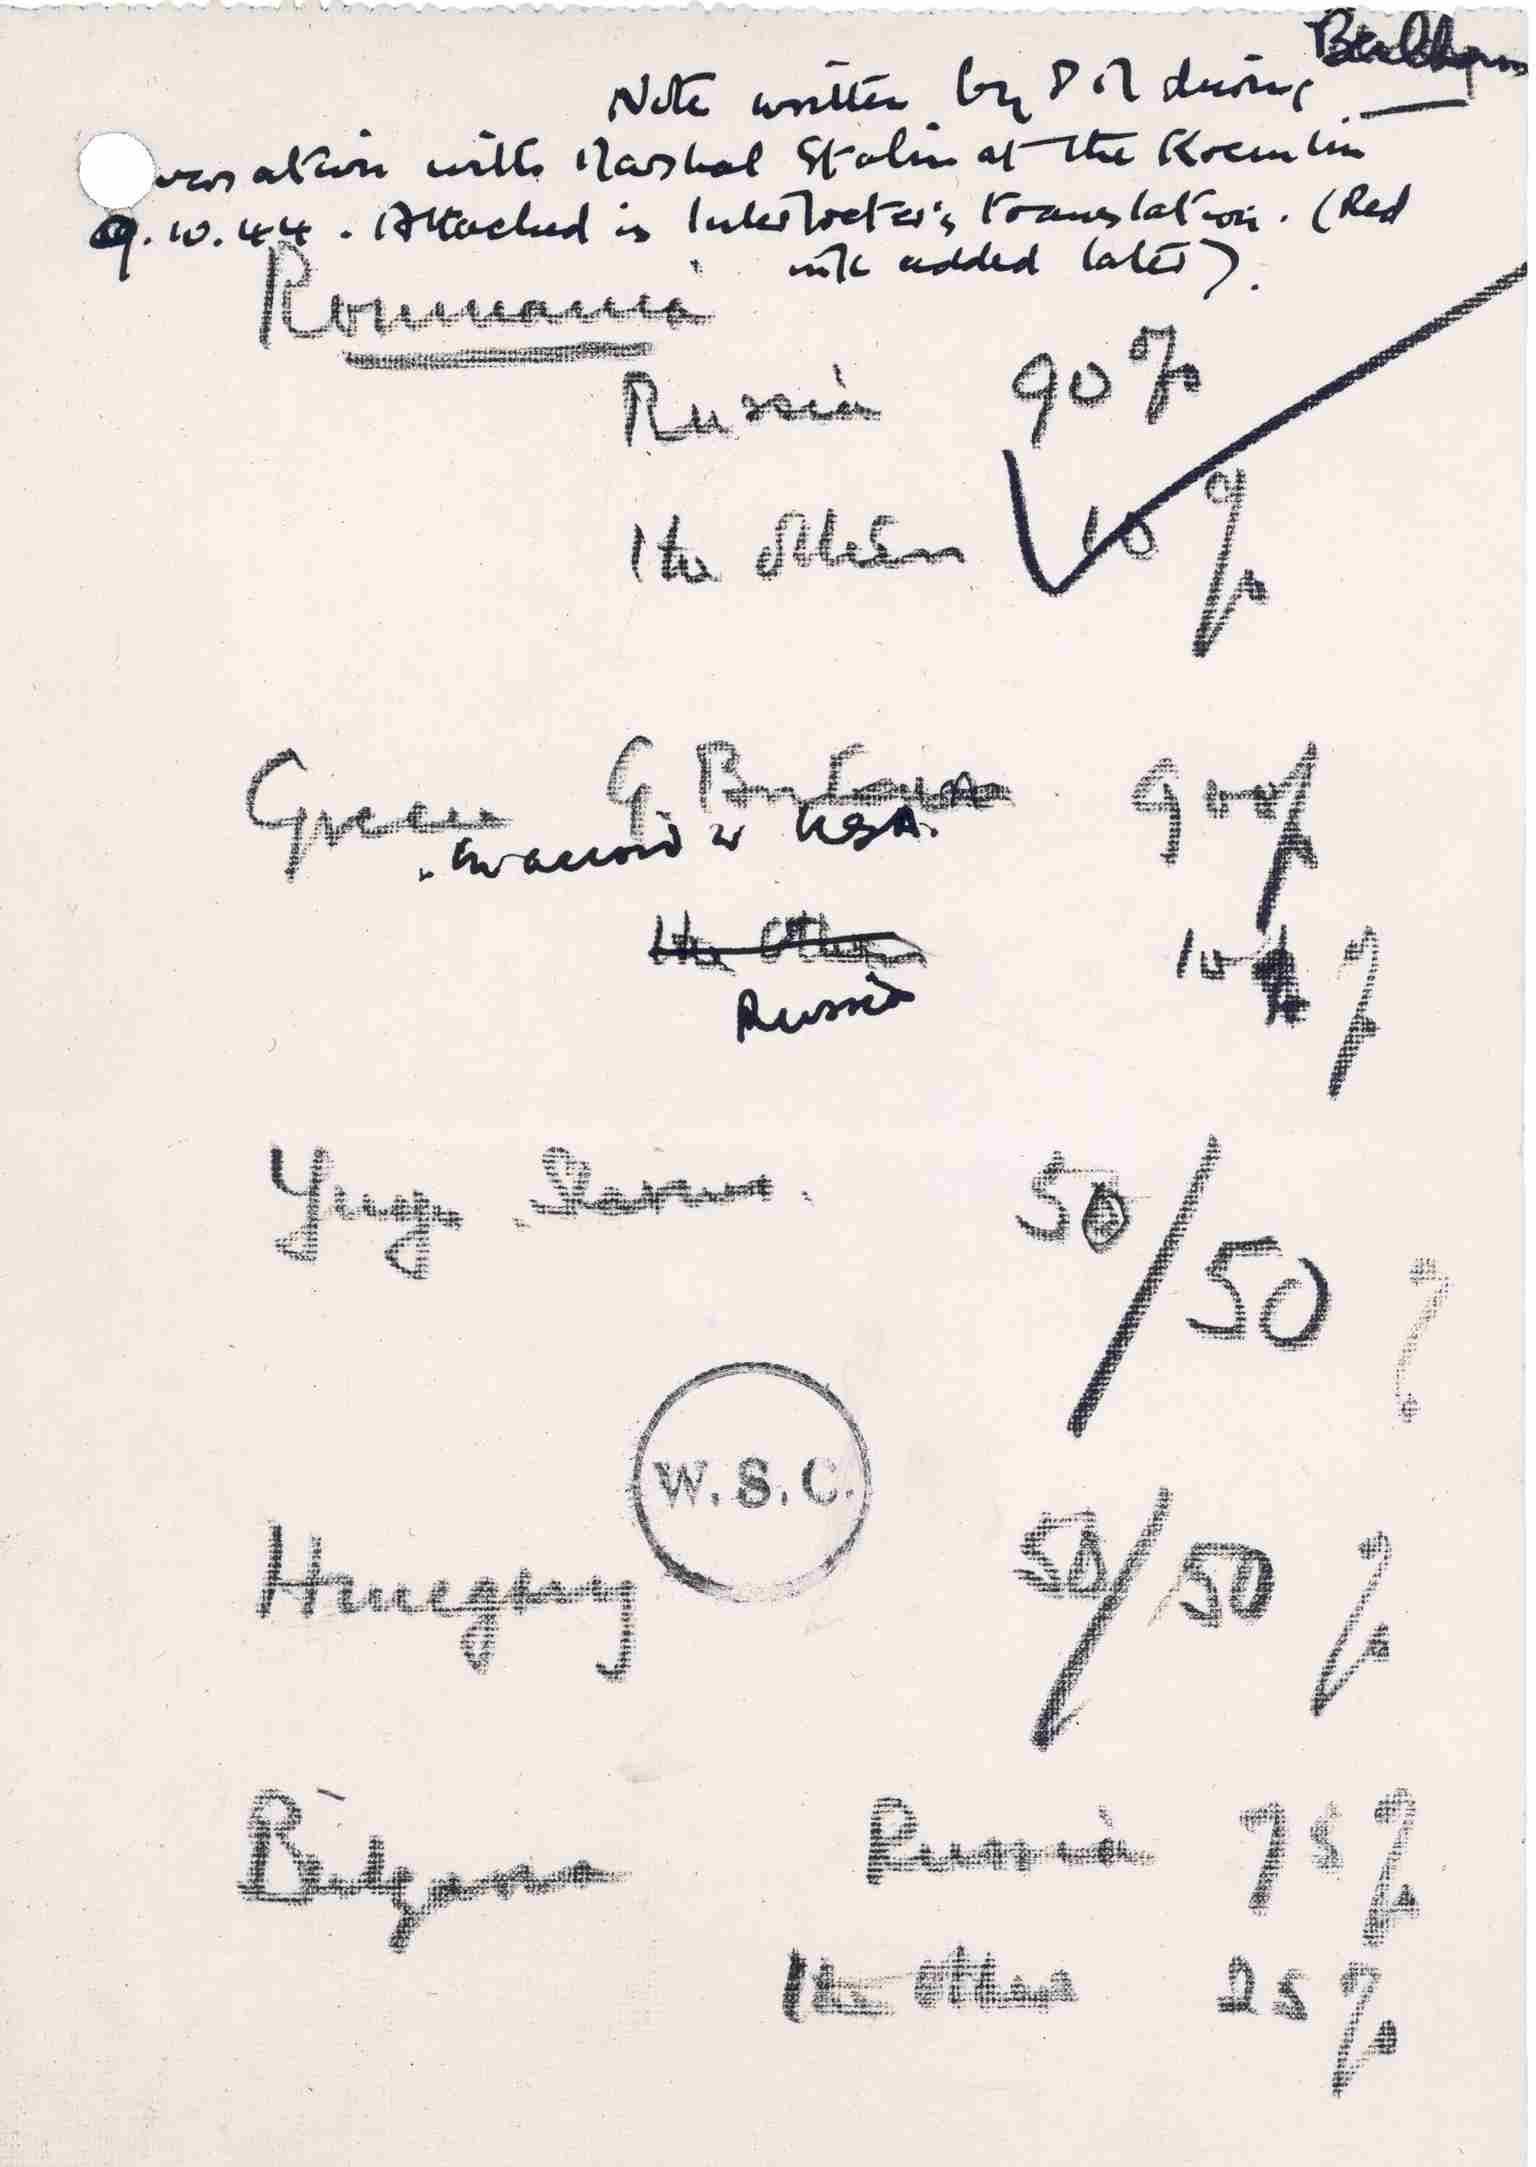 Note written by PM during
versation with Marshal Stalin at the Kremlin
9.10.44. Attached is Interpreter's translation. (Red
ink added later).
Roumania
Russia 90%
The others 10%
Greece G. Britain 90%
in accord w USA.
The Others 10%
Russia
Yugo Slavia. 50/50%
W.S.C.
Hungary 50/50%
Bulgaria Russia 75%
The others 25%